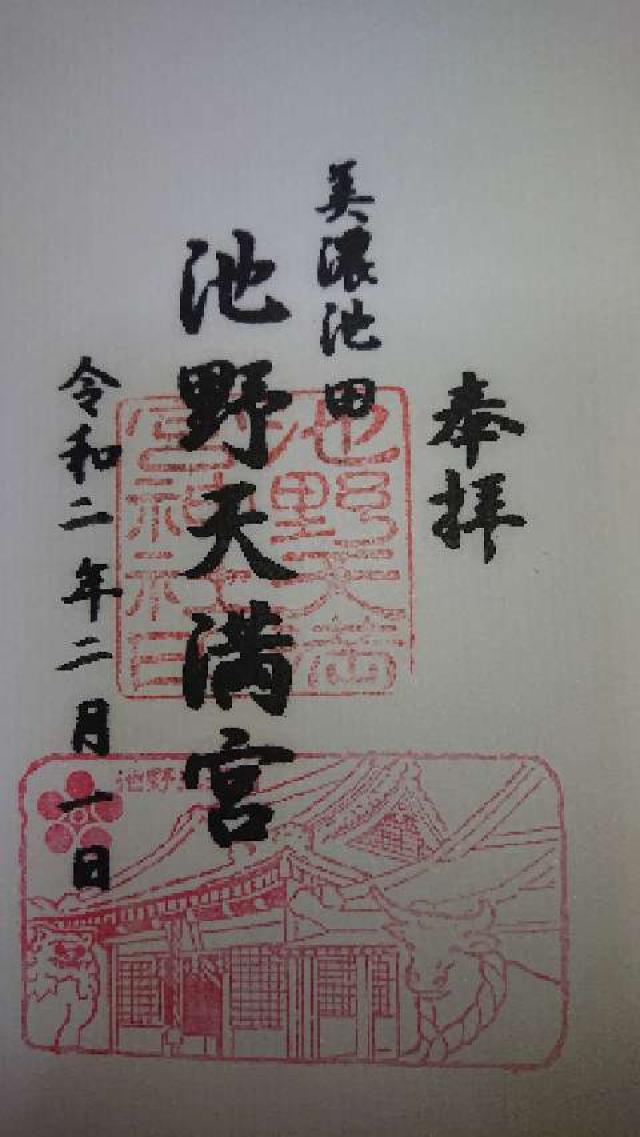 奉拝
美濃池田
池野天満宮
令和二年二月一日
池野天満
宮神社印
池野